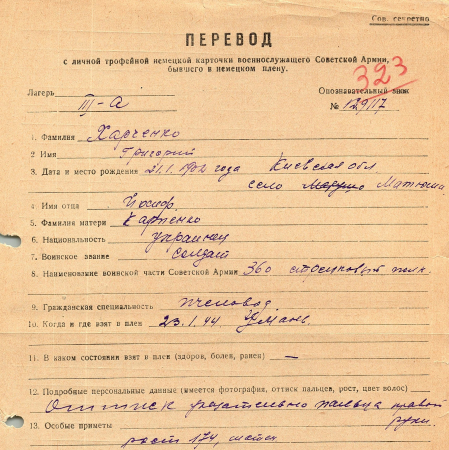 Сов. секретно
ПЕРЕВОД
с личной трофейной немецкой карточки военнослужащего Советской Армии,
бывшего в немецком плену.
323
Лагерь III-А
Опознавательный знак
№ 129117
1. Фамилия Харченко
2. Имя Григорий
3. Дата и место рождения 21.1.1902 года Киевская обл
село Матюши
4. Имя отца Иосиф
5. Фамилия матери Карпенко
6. Национальность украинец
7. Воинское звание солдат
8. Наименование воинской части Советской Армии 360 стрелковый полк.
9. Гражданская специальность пчеловод
10. Когда и где взят в плен 23.1.44. Умань.
11. В каком состоянии взят в плен (здоров, болен, ранен) —
12. Подробные персональные данные (имеется фотография, оттиск пальцев, рост, цвет волос)
Оттиск указательно пальца правой
руки.
13. Особые приметы
рост 174,